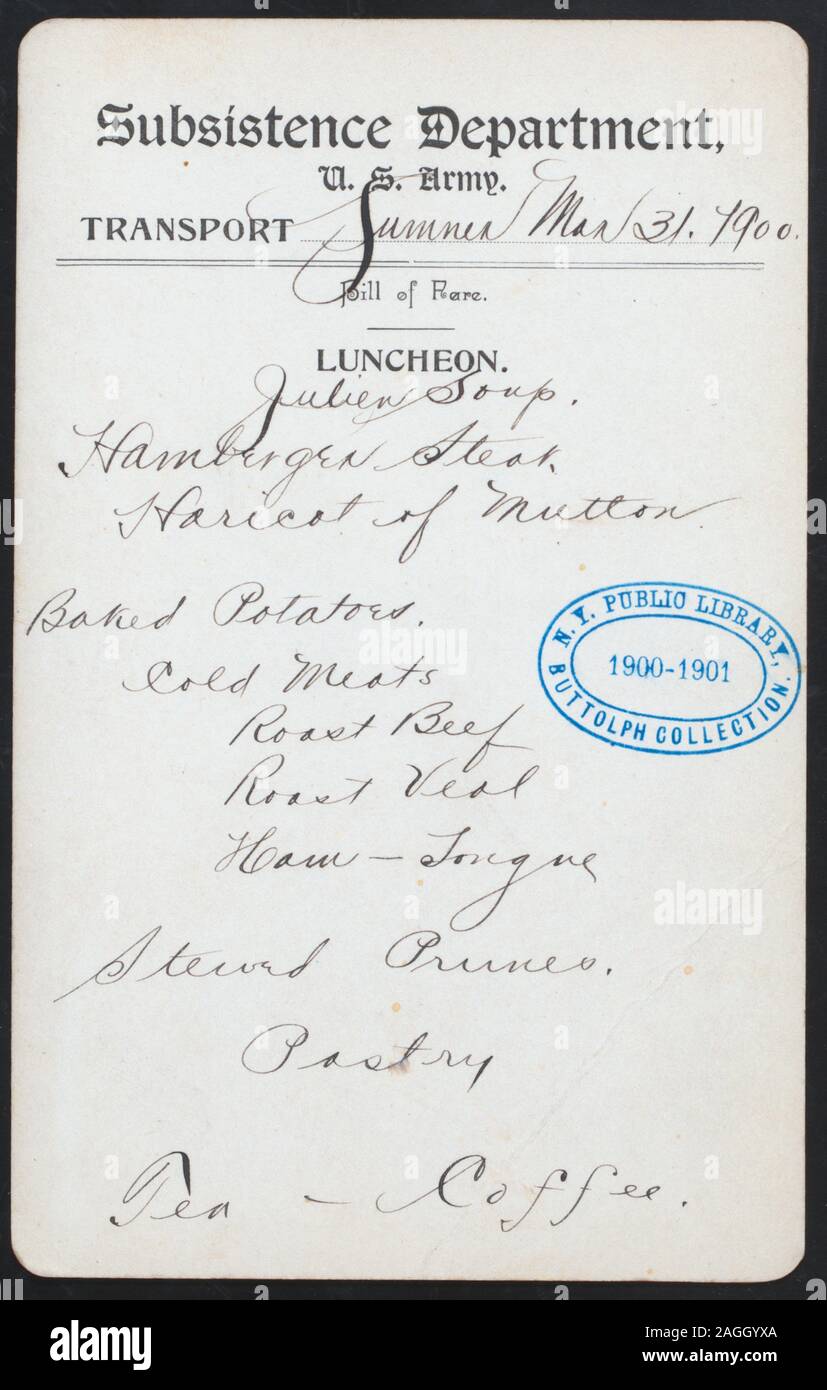 Subsistence Department,
U. S. Army.
TRANSPORT Sumner Mar 31. 1900.
Bill of Fare.
LUNCHEON.
Julien Soup.
Hamberger Steak.
Haricot of Mutton
Baked Potatoes.
Cold Meats
Roast Beef
Roast Veal
Ham - Tongue
Stewed Prunes.
Pastry
Tea - Coffee.
N. Y. PUBLIC LIBRARY,
1900-1901
BUTTOLPH COLLECTION.
alamy
alamy
alamy
alamy
Image ID: 2AGGYXA
www.alamy.com